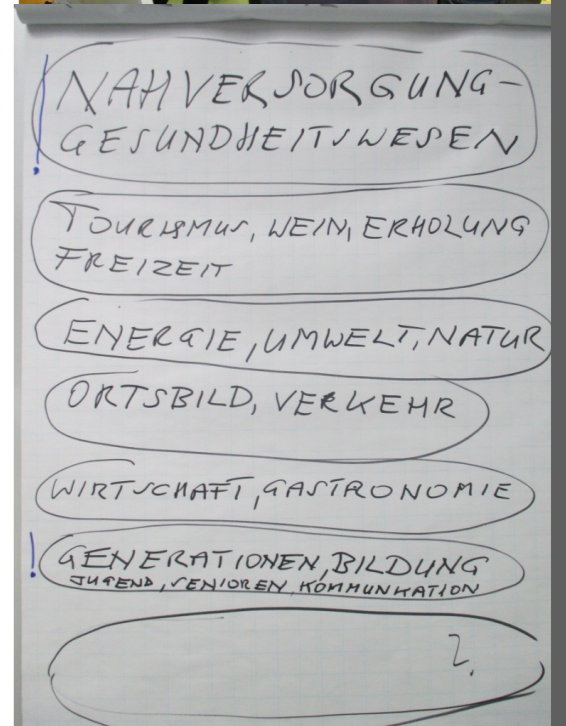 ! NAHVERSORGUNG-
GESUNDHEITSWESEN
TOURISMUS, WEIN, ERHOLUNG
FREIZEIT
ENERGIE, UMWELT, NATUR
ORTSBILD, VERKEHR
WIRTSCHAFT, GASTRONOMIE
! GENERATIONEN, BILDUNG
JUGEND, SENIOREN, KOMMUNIKATION
?